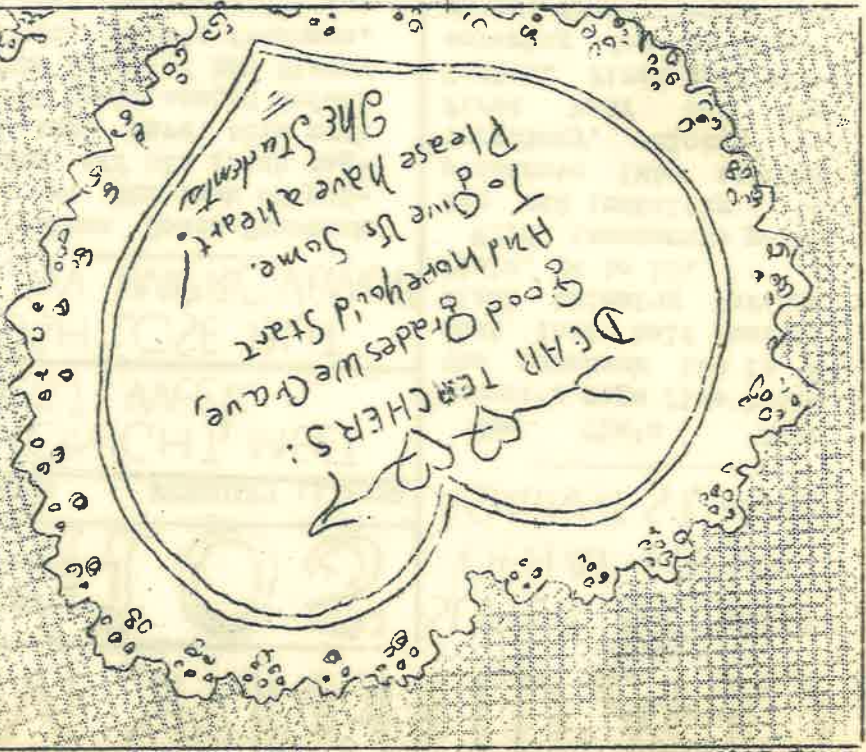 DEAR TEACHERS:
Good Grades We Crave,
And hope you'd Start
To Give Us Some.
Please have a heart!
The Students